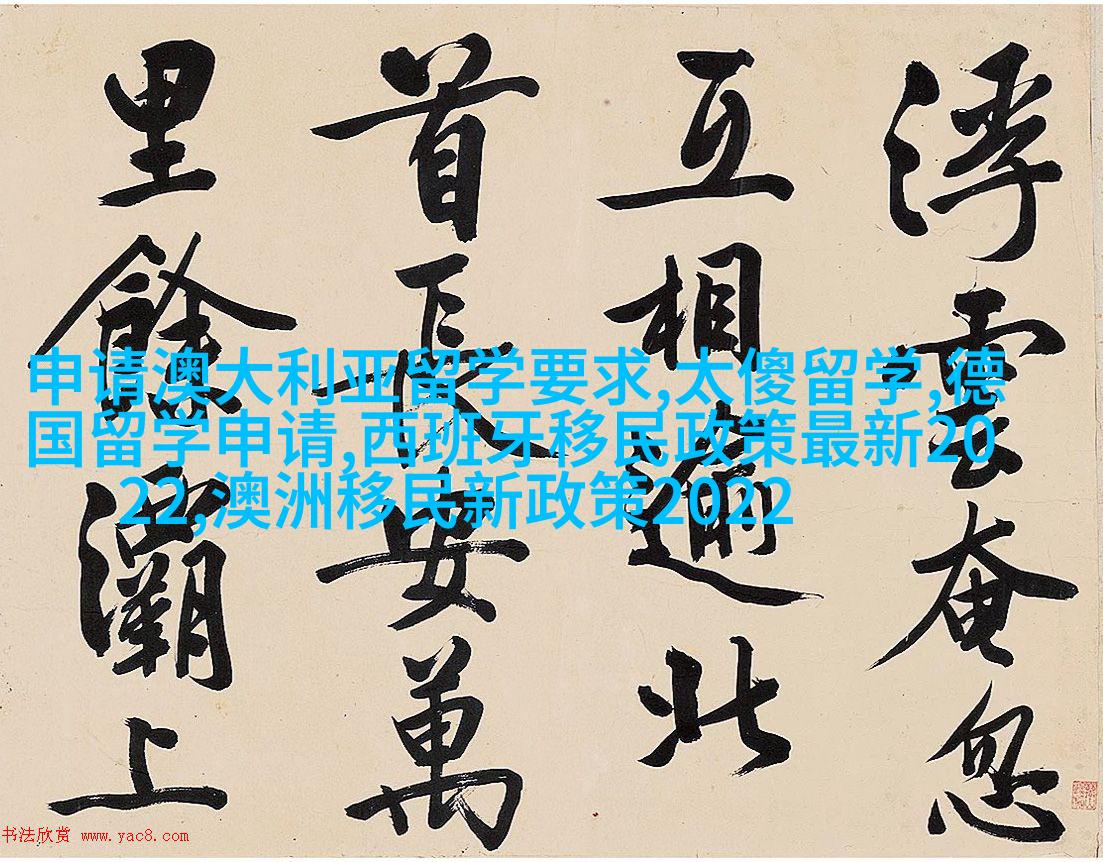 浮雲奄忽
互相逾北
首長安萬
里餘灞上
申请澳大利亚留学要求,太傻留学,德
国留学申请,西班牙移民政策最新20
22,澳洲移民新政策2022
书法欣赏 www.yac8.com